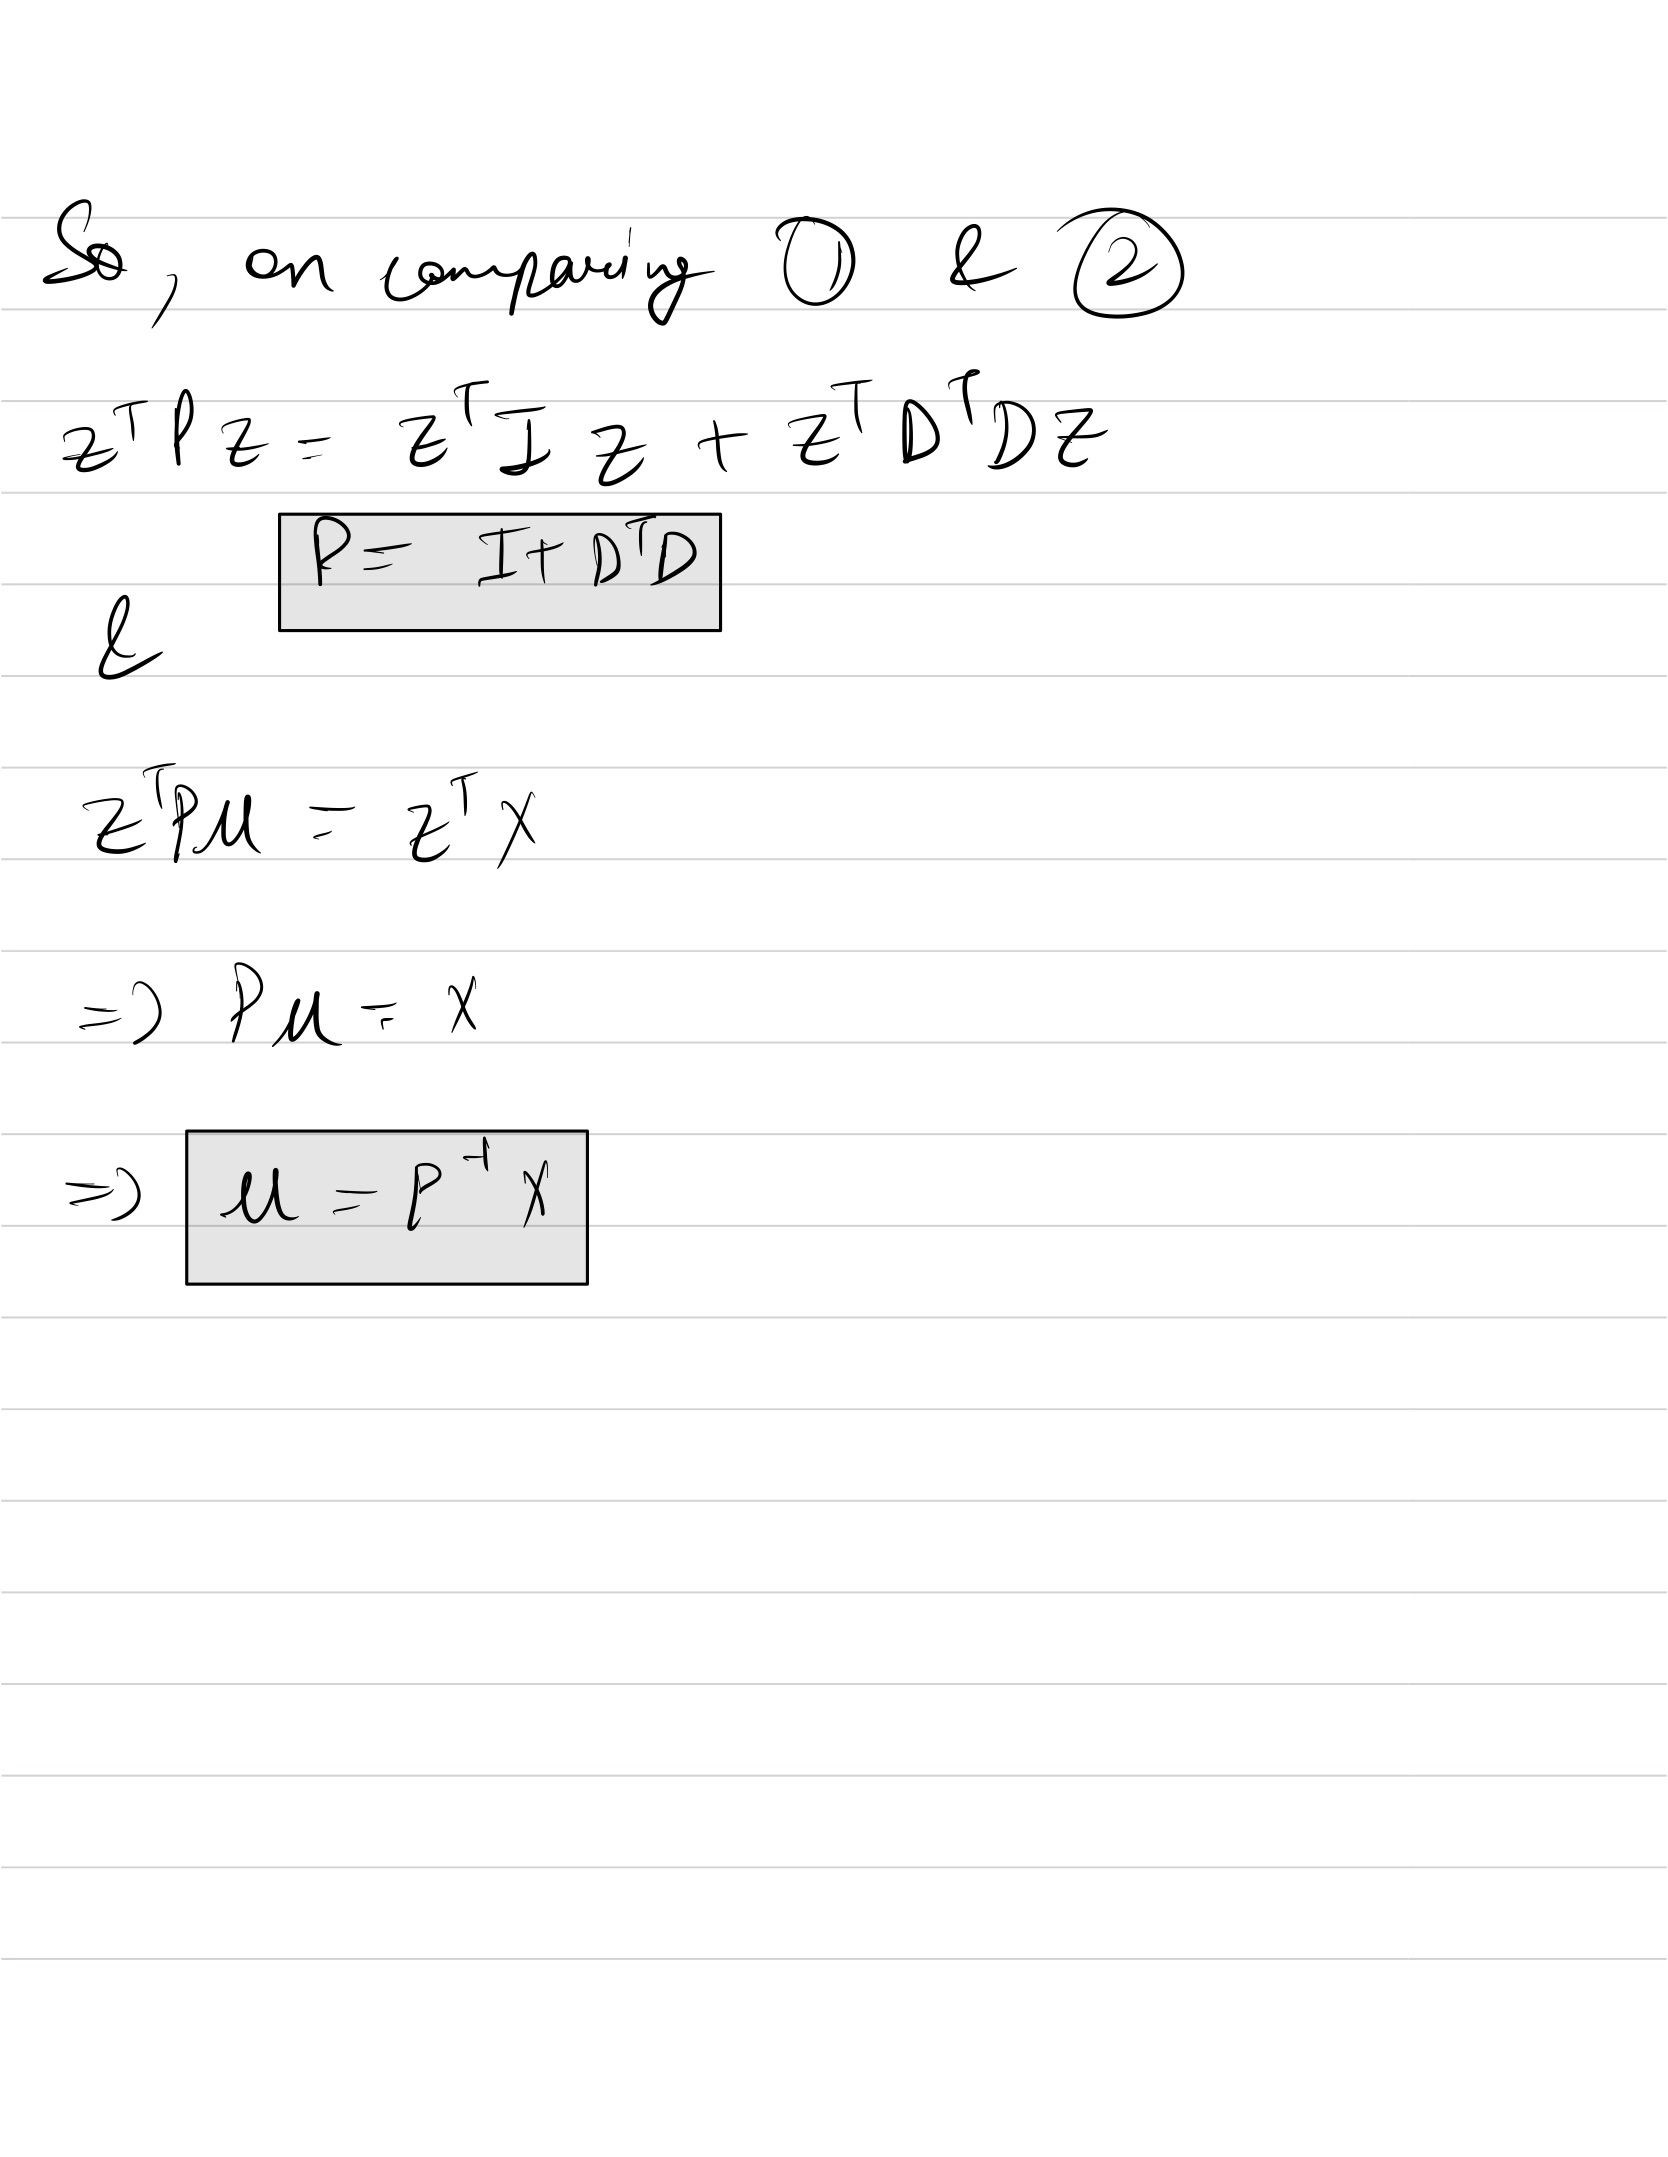 So, on comparing ① & ②
zᵀPz = zᵀIz + zᵀDᵀDz
P = I + DᵀD
&
zᵀPμ = zᵀx
=> Pμ = x
=> μ = P⁻¹x